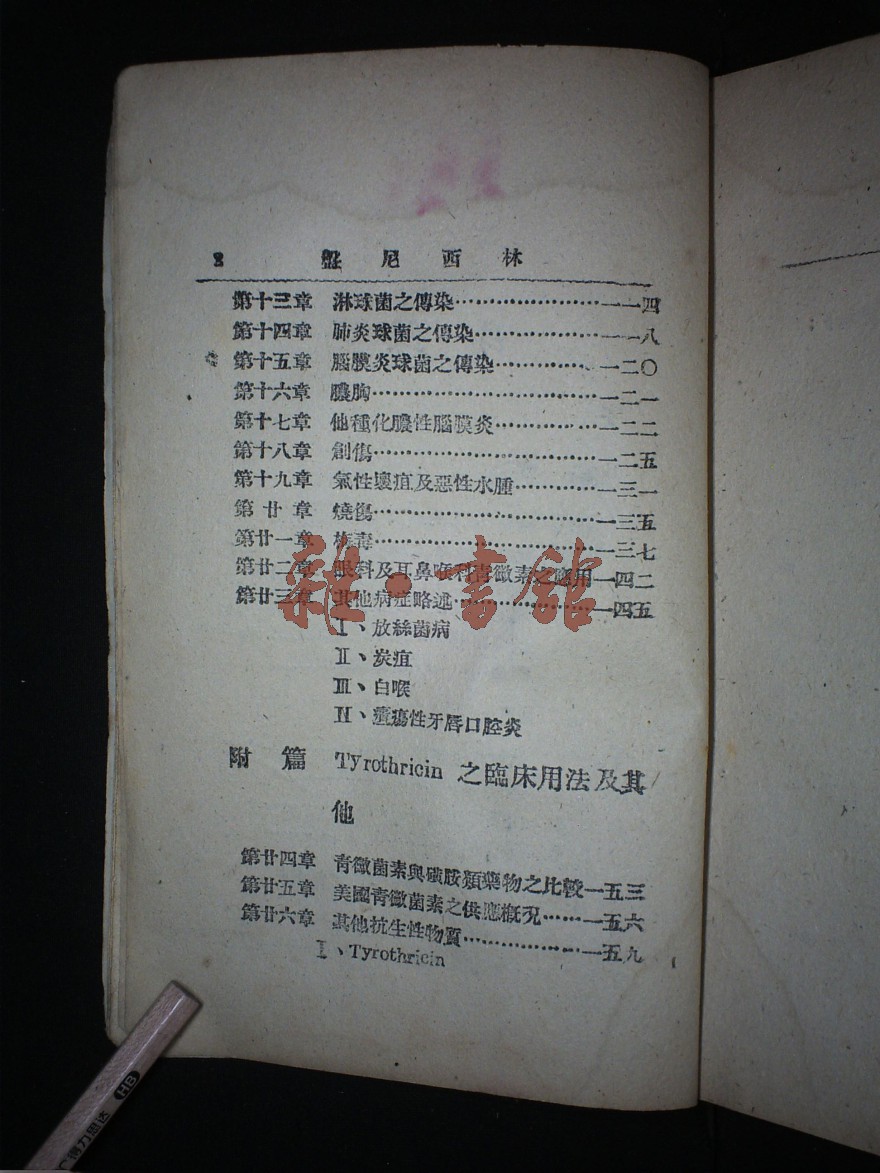 2 盤尼西林
第十三章 淋球菌之傳染……………………一一四
第十四章 肺炎球菌之傳染…………………一一八
第十五章 腦膜炎球菌之傳染………………一二〇
第十六章 膿胸………………………………一二一
第十七章 他種化膿性腦膜炎………………一二二
第十八章 創傷………………………………一二五
第十九章 氣性壞疽及惡性水腫……………一三一
第廿章 燒傷…………………………………一三五
第廿一章 梅毒………………………………一三七
第廿二章 眼科及耳鼻喉科青黴素之應用一四二
第廿三章 其他病症略述……………………一四五
I、放絲菌病
II、炭疽
III、白喉
IV、潰瘍性牙唇口腔炎
附篇 Tyrothricin 之臨床用法及其
他
第廿四章 青黴菌素與磺胺類藥物之比較一五三
第廿五章 美國青黴菌素之供應概況……一五六
第廿六章 其他抗生性物質………………一五九
I、Tyrothricin
雜·書館
HB
得力思达